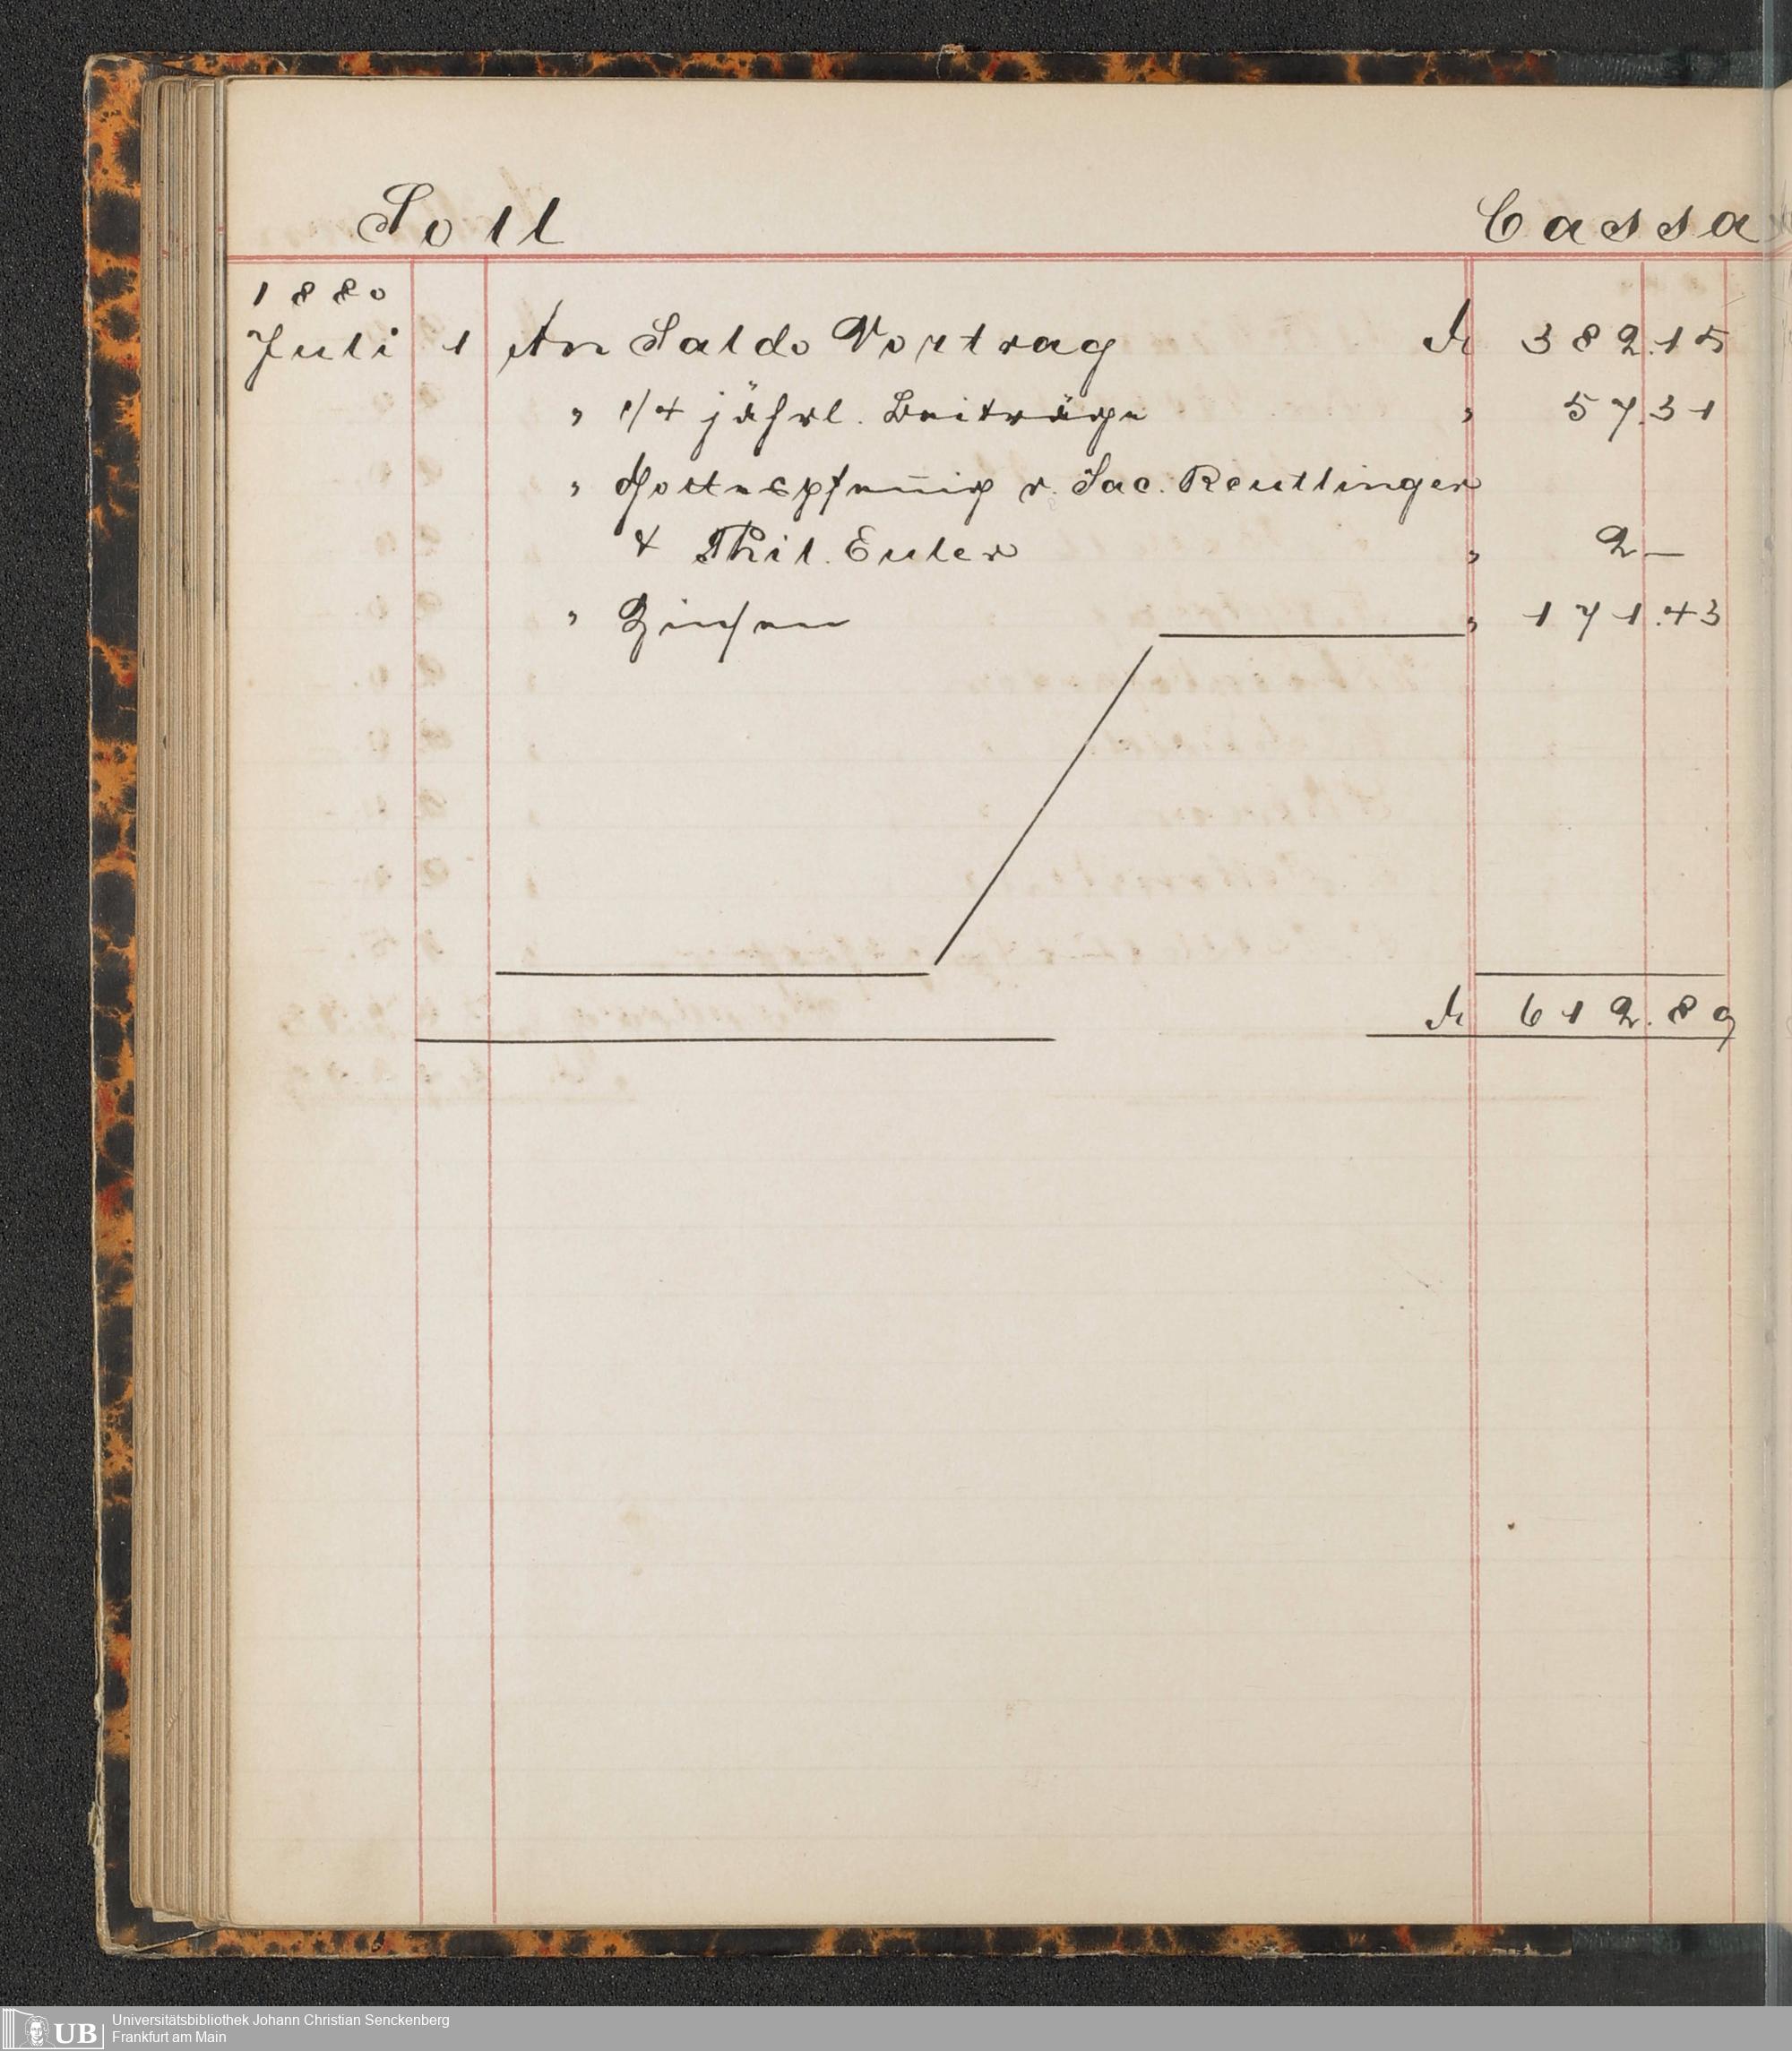 Soll Cassa
1880
Juli 1 An Saldo Vortrag ℳ 382.15
" 1/4 jährl. Beiträge " 57.31
" Gottespfennig v. Jac. Reutlinger
& Phil. Euler " 2 —
" Zinsen " 171.43
ℳ 612.89
UB
Universitätsbibliothek Johann Christian Senckenberg
Frankfurt am Main